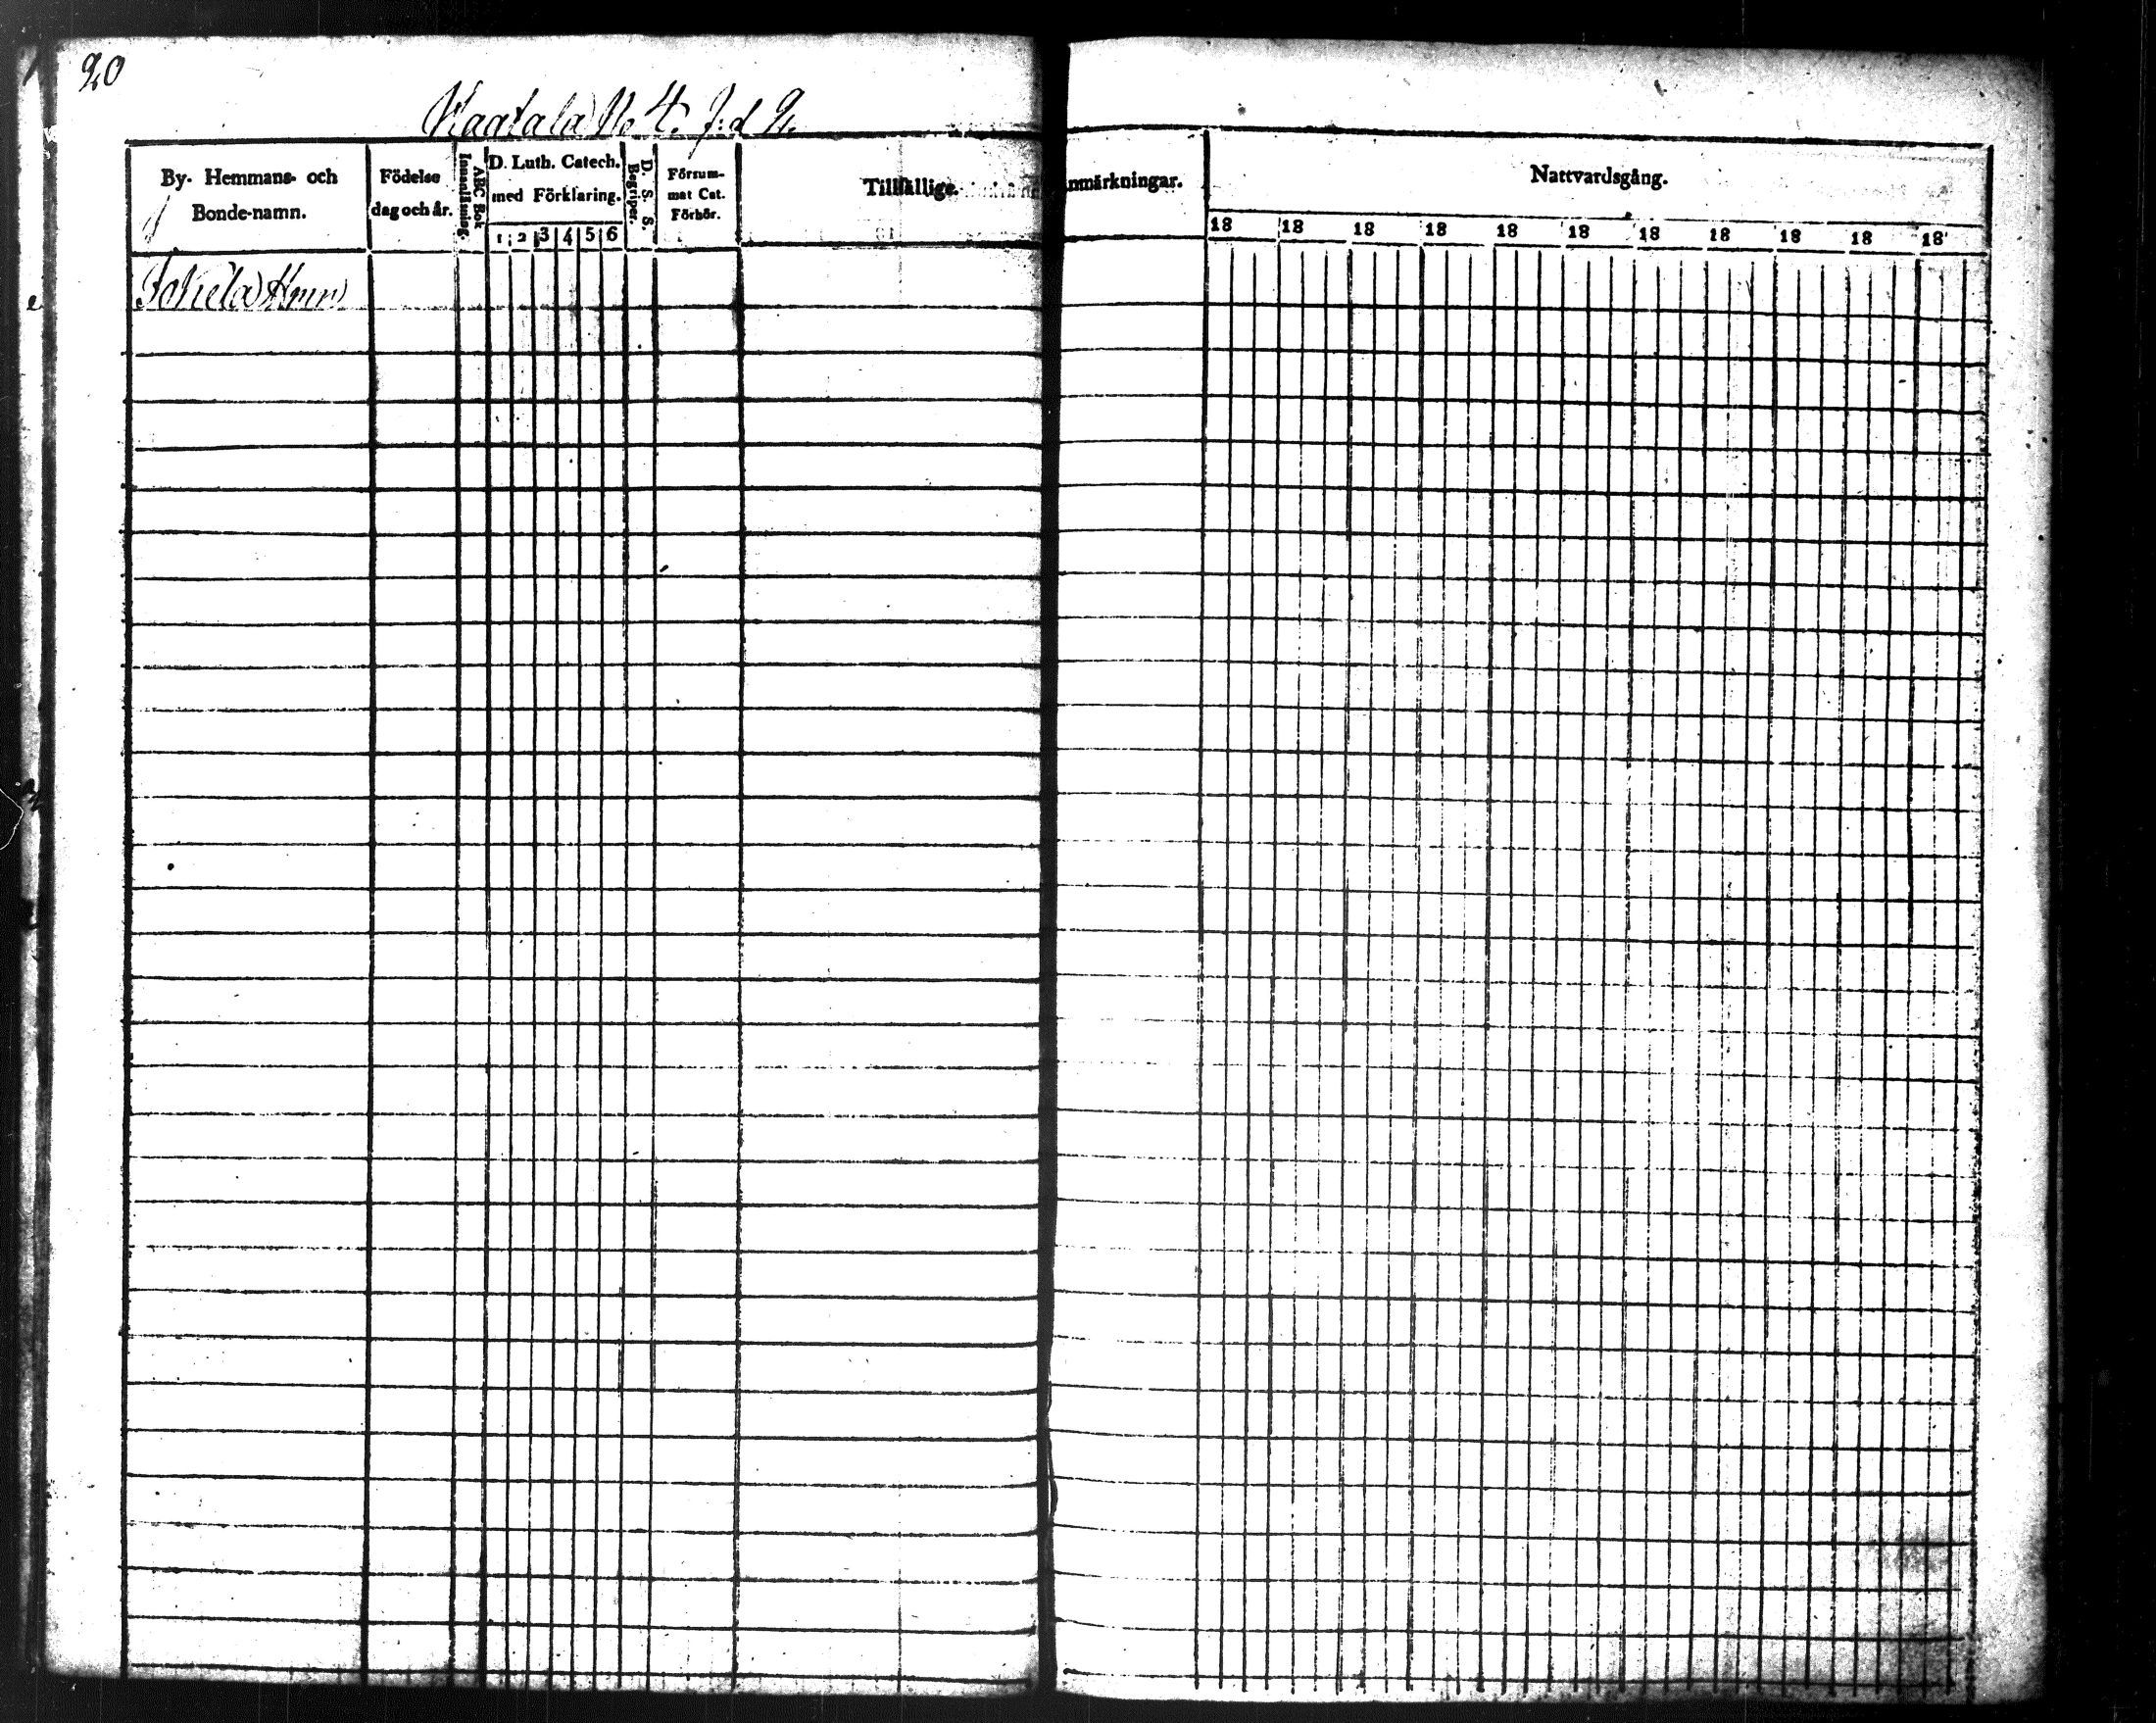 20
Kaatala No 4. J:d 9.
By- Hemmans- och
Bonde-namn.
Födelse
dag och år.
ABC Bok
Innanläsning.
D. Luth. Catech.
med Förklaring.
1 2 3 4 5 6
D. S. S.
Begriper.
Försum-
mat Cat.
Förhör.
Tillfällige
nmärkningar.
Nattvardsgång.
18 18 18 18 18 18 18 18 18 18 18